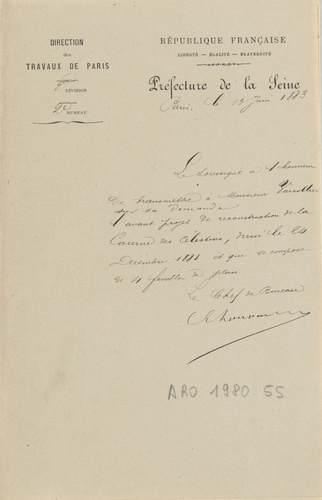 DIRECTION
des
TRAVAUX DE PARIS
DIVISION
2e BUREAU
RÉPUBLIQUE FRANÇAISE
LIBERTÉ — ÉGALITÉ — FRATERNITÉ
Préfecture de la Seine
Paris, le 13 Juin 1883
Le soussigné a l'honneur
de transmettre à Monsieur
sur sa demande
l'avant projet de reconstruction de la
Caserne des Célestins, dressé le 24
Décembre 1881 et qui se compose
de 4 feuilles de plan
Le Chef de Bureau
ARO 1980 55